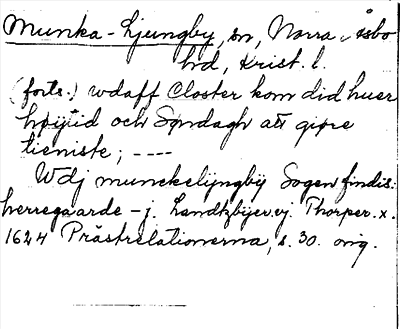 Munka-Ljungby, sn, Norra Åsbo
hd, Krist. l.
(forts.) wdaff Closter kom did huer
høytid och Søndagh att giøre
tieniste; ----
Wdj munckelijngbÿ Sogen findis:
herregaarde - j. Landtzbijer vj. Thorper. x.
1624 Prästrelationerna, s. 30. orig.